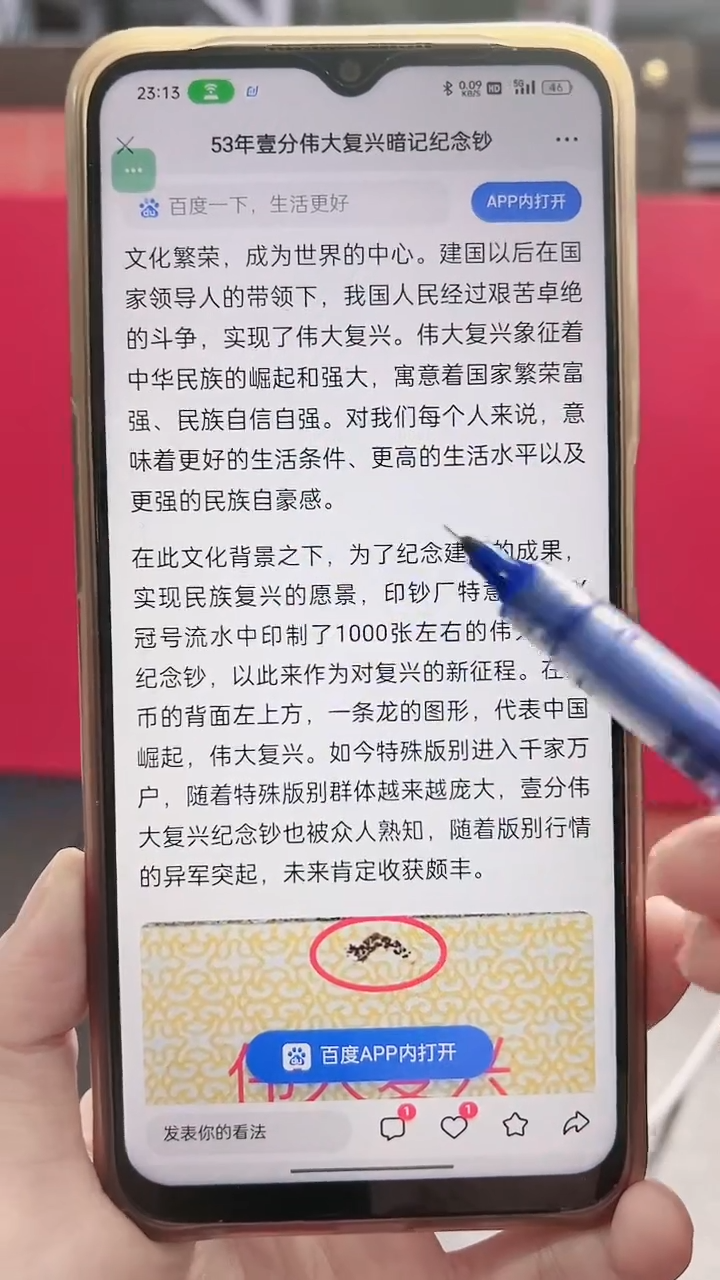 23:13
0.09 KB/S HD 5G 46
53年壹分伟大复兴暗记纪念钞
百度一下，生活更好
APP内打开
文化繁荣，成为世界的中心。建国以后在国
家领导人的带领下，我国人民经过艰苦卓绝
的斗争，实现了伟大复兴。伟大复兴象征着
中华民族的崛起和强大，寓意着国家繁荣富
强、民族自信自强。对我们每个人来说，意
味着更好的生活条件、更高的生活水平以及
更强的民族自豪感。
在此文化背景之下，为了纪念建 的成果，
实现民族复兴的愿景，印钞厂特意
冠号流水中印制了1000张左右的伟
纪念钞，以此来作为对复兴的新征程。在
币的背面左上方，一条龙的图形，代表中国
崛起，伟大复兴。如今特殊版别进入千家万
户，随着特殊版别群体越来越庞大，壹分伟
大复兴纪念钞也被众人熟知，随着版别行情
的异军突起，未来肯定收获颇丰。
百度APP内打开
伟大复兴
发表你的看法
1
1